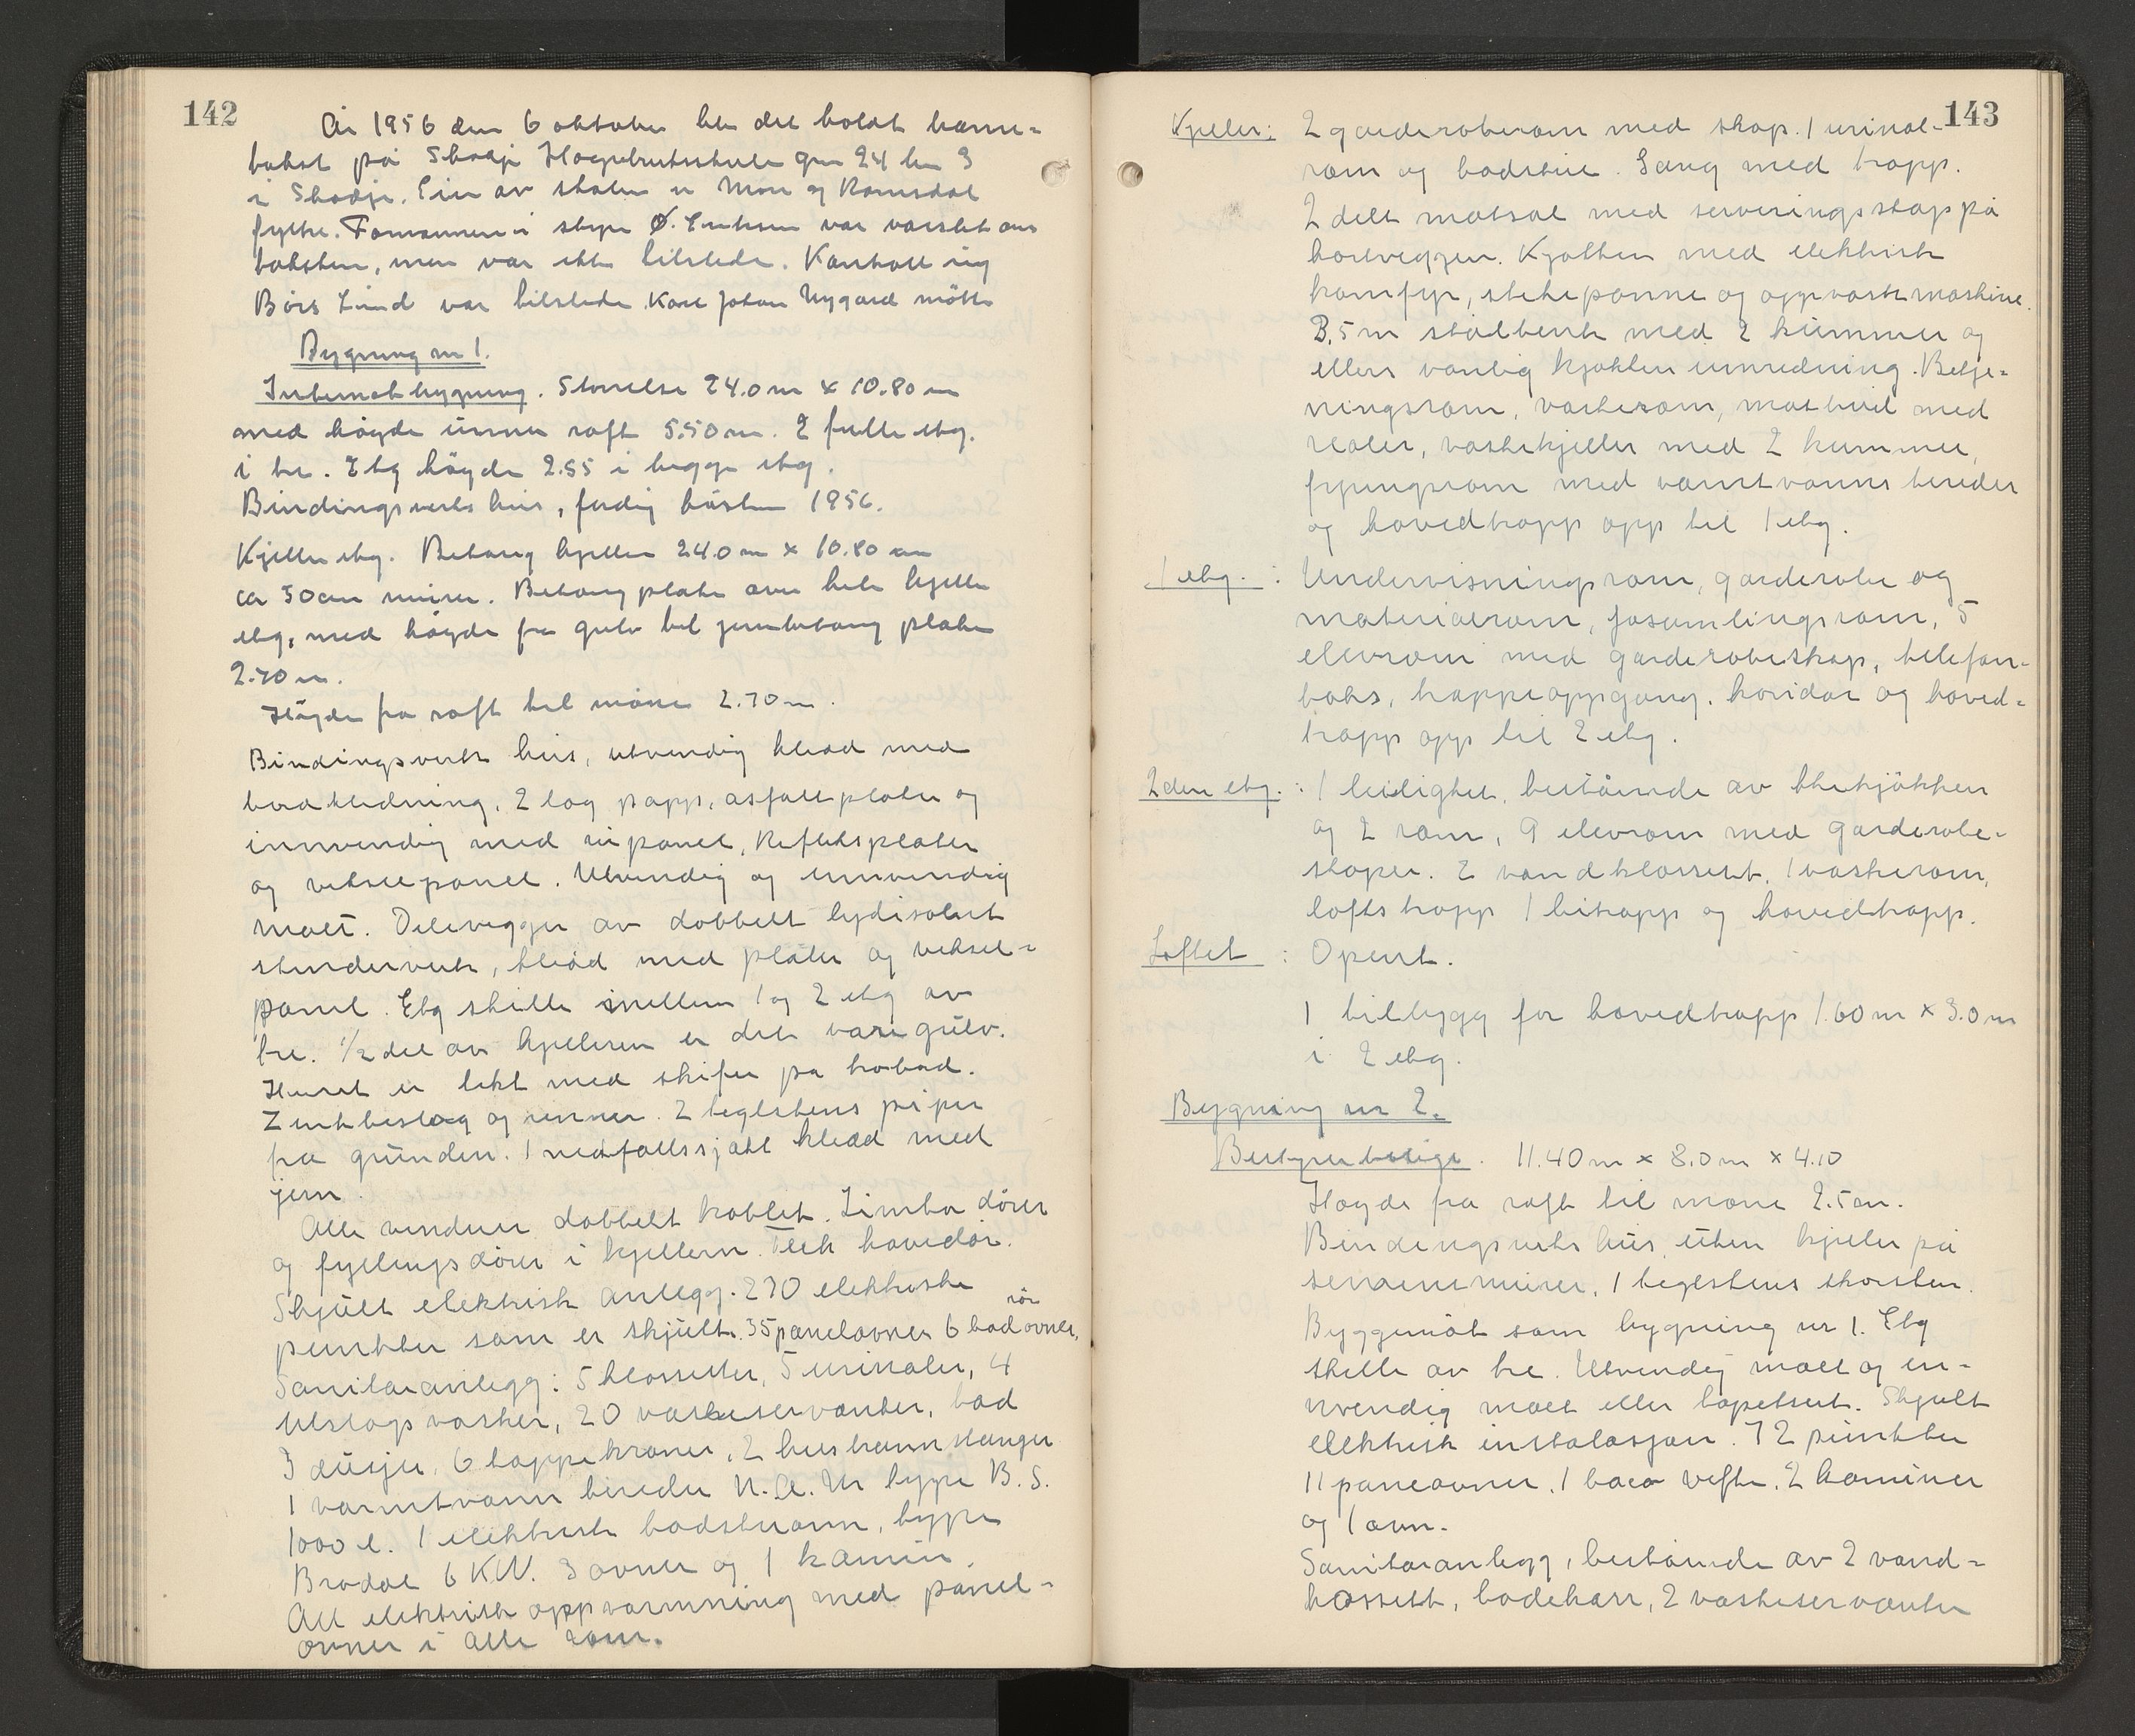 142
År 1956 den 6 oktober ble det holdt branne=
takst på Skodje Hagebruksskule gnr 24 bnr 3
i Skodje. Eier av skolen er Møre og Romsdal
fylke. Formannen i styre Ø. Eriksen var varslet om
taksten, men var ikke tilstede. Kontorist
Børs Lund var tilstede Kåre Johan Nygård møtte
Bygning nr 1.
Internatbygning. Størrelse 24.0 m x 10.80 m
med høgde under raft 5.50 m. 2 fulle etg.
i tre. Etg høgde 2.55 i begge etg.
Bindingsverks hus, ferdig høsten 1956.
Kjelleretg. Betong kjeller 24.0 m x 10.80 m
ca 30 cm murer. Betongplate over hele kjeller
etg, med høgde fra gulv til jernbetong plate
2.70 m.
Høgde fra raft til møne 2.70 m.
Bindingsverks hus, utvendig kledd med
bordkledning, 2 lag papp, asfaltplater og
innvendig med rupanel, Refleksplater
og vekselpanel. Utvendig og innvendig
malt. Delevegger av dobbelt lydisolert
stenderverk, kledd med plater og veksel=
panel. Etg skille mellem 1 og 2 etg av
tre. 1/2 del av kjelleren er det varegulv.
Huset er tekt med skifer på trobord.
Zinkbeslag og renner. 2 teglstens piper
fra grunden. 1 nedfallssjakt kledd med
jern.
Alle vinduer dobbelt koblet. Limba dører
og fyllingsdører i kjellern. Teek hoveddør.
Skjult elektrisk anlegg. 270 elektriske
punkter som er skjult. 35 panelovner 6 bad rör ovner,
Sanitæranlegg: 5 klossetter, 5 urinaler, 4
utslagsvasker, 20 vaskeservanter, bad
3 dusjer, 6 tappekraner, 2 husbrannslanger
1 varmtvann bereder N.A.M type B.S.
1000 l. 1 elektrisk badstuovn, type
Brødal 6 KW. 3 ovner og 1 kamin.
All elektrisk oppvarmning med panel=
ovner i alle rom.
143
Kjeller: 2 garderoberom med skap. 1 urinal-
rom og badstue. Gang med trapp.
2 delt matsal med serveringsskap på
tverveggen. Kjøkken med elektrisk
komfyr, stekepanne og oppvaskmaskine.
3,5 m stålbenk med 2 kummer og
ellers vanlig kjøkken innredning. Betje=
ningsrom, vaskerom, matbod med
realer, vaskekjeller med 2 kummer,
fyringsrom med varmtvanns bereder
og hovedtrapp opp til 1 etg.
1 etg. : Undervisningsrom, garderobe og
materialrom, forsamlingsrom, 5
elevrom med garderobeskap, telefon-
boks, trappeoppgang, koridor og hoved=
trapp opp til 2 etg.
2den etg. : 1 leilighet, bestående av thekjøkken
og 2 rom, 9 elevrom med garderobe-
skaper. 2 vandklossett, 1 vaskerom,
loftstrapp 1 bitrapp og hovedtrapp.
Loftet : Opent.
1 tilbygg for hovedtrapp 1.60 m x 3.0 m
i 2 etg.
Bygning nr 2.
Bestyrerbolige. 11.40 m x 8.0 m x 4.10
Høgde fra raft til møne 2.5 m.
Bindingsverks hus, uten kjeller på
1 teglstens skorsten.
Byggemåt som bygning nr 1. Etg
skille av tre. Utvendig malt og in-
nvendig malt eller tapetsert. Skjult
elektrisk instalasjon. 72 punkter
11 panelovner, 1 baco vifte, 2 kaminer
og 1 ovn.
Sanitæranlegg, bestående av 2 vand=
klossett, badekarr, 2 vaskeservanter